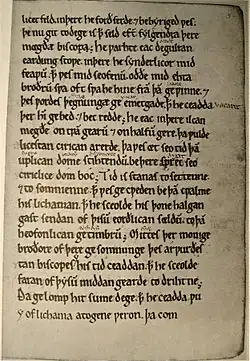 licetfeld. inþere he forðferde ⁊ bebyriged ƿes.
þe nu git todege is þ seld eft fylgendra þere
megðæ biscopa; he ƿorhte eac degultan
eardung stoƿe. inþere he synderlicor mid
feaƿū. þ ƿes mid seofenū. oððe mid ehta
broðrū sƿa oft sƿa he hine frā þā geƿinne ⁊
þes ƿordes þegnunge gemetgade. þ he ceadda
þer hī gebed ⁊ bec redde; he eac inþere ilcan
megðe on tƿā gearū ⁊ on halfū gere. þa ƿuldor
licestan cirican arerde. þa ƿes æt seo tid þā
uplican dome stihtendū. beþere sprec seo
ciriclice dom boc; Tid is stanas to settenne
⁊ to somnienne. þ ƿes gecƿeden be þā cƿalme
his lichaman. þ he sceolde his þone halgan
gast sendan of þisū eorðlican seldū. to þā
heofonlican getimbrū; Mittes þer monige
broðore of þere gesomnunge þes arƿurðes
tan biscopes his tid ceaddan. þ he sceolde
faran of þysū middangearde to drihtne;
Ða gelomp hit sume dege. þ he ceadda ƿu
of lichama atogene ƿeron. þa com